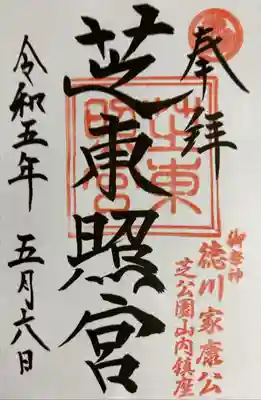 奉拝
御祭神
徳川家康公
芝公園山内鎮座
芝東照宮
芝東照宮
令和五年 五月六日